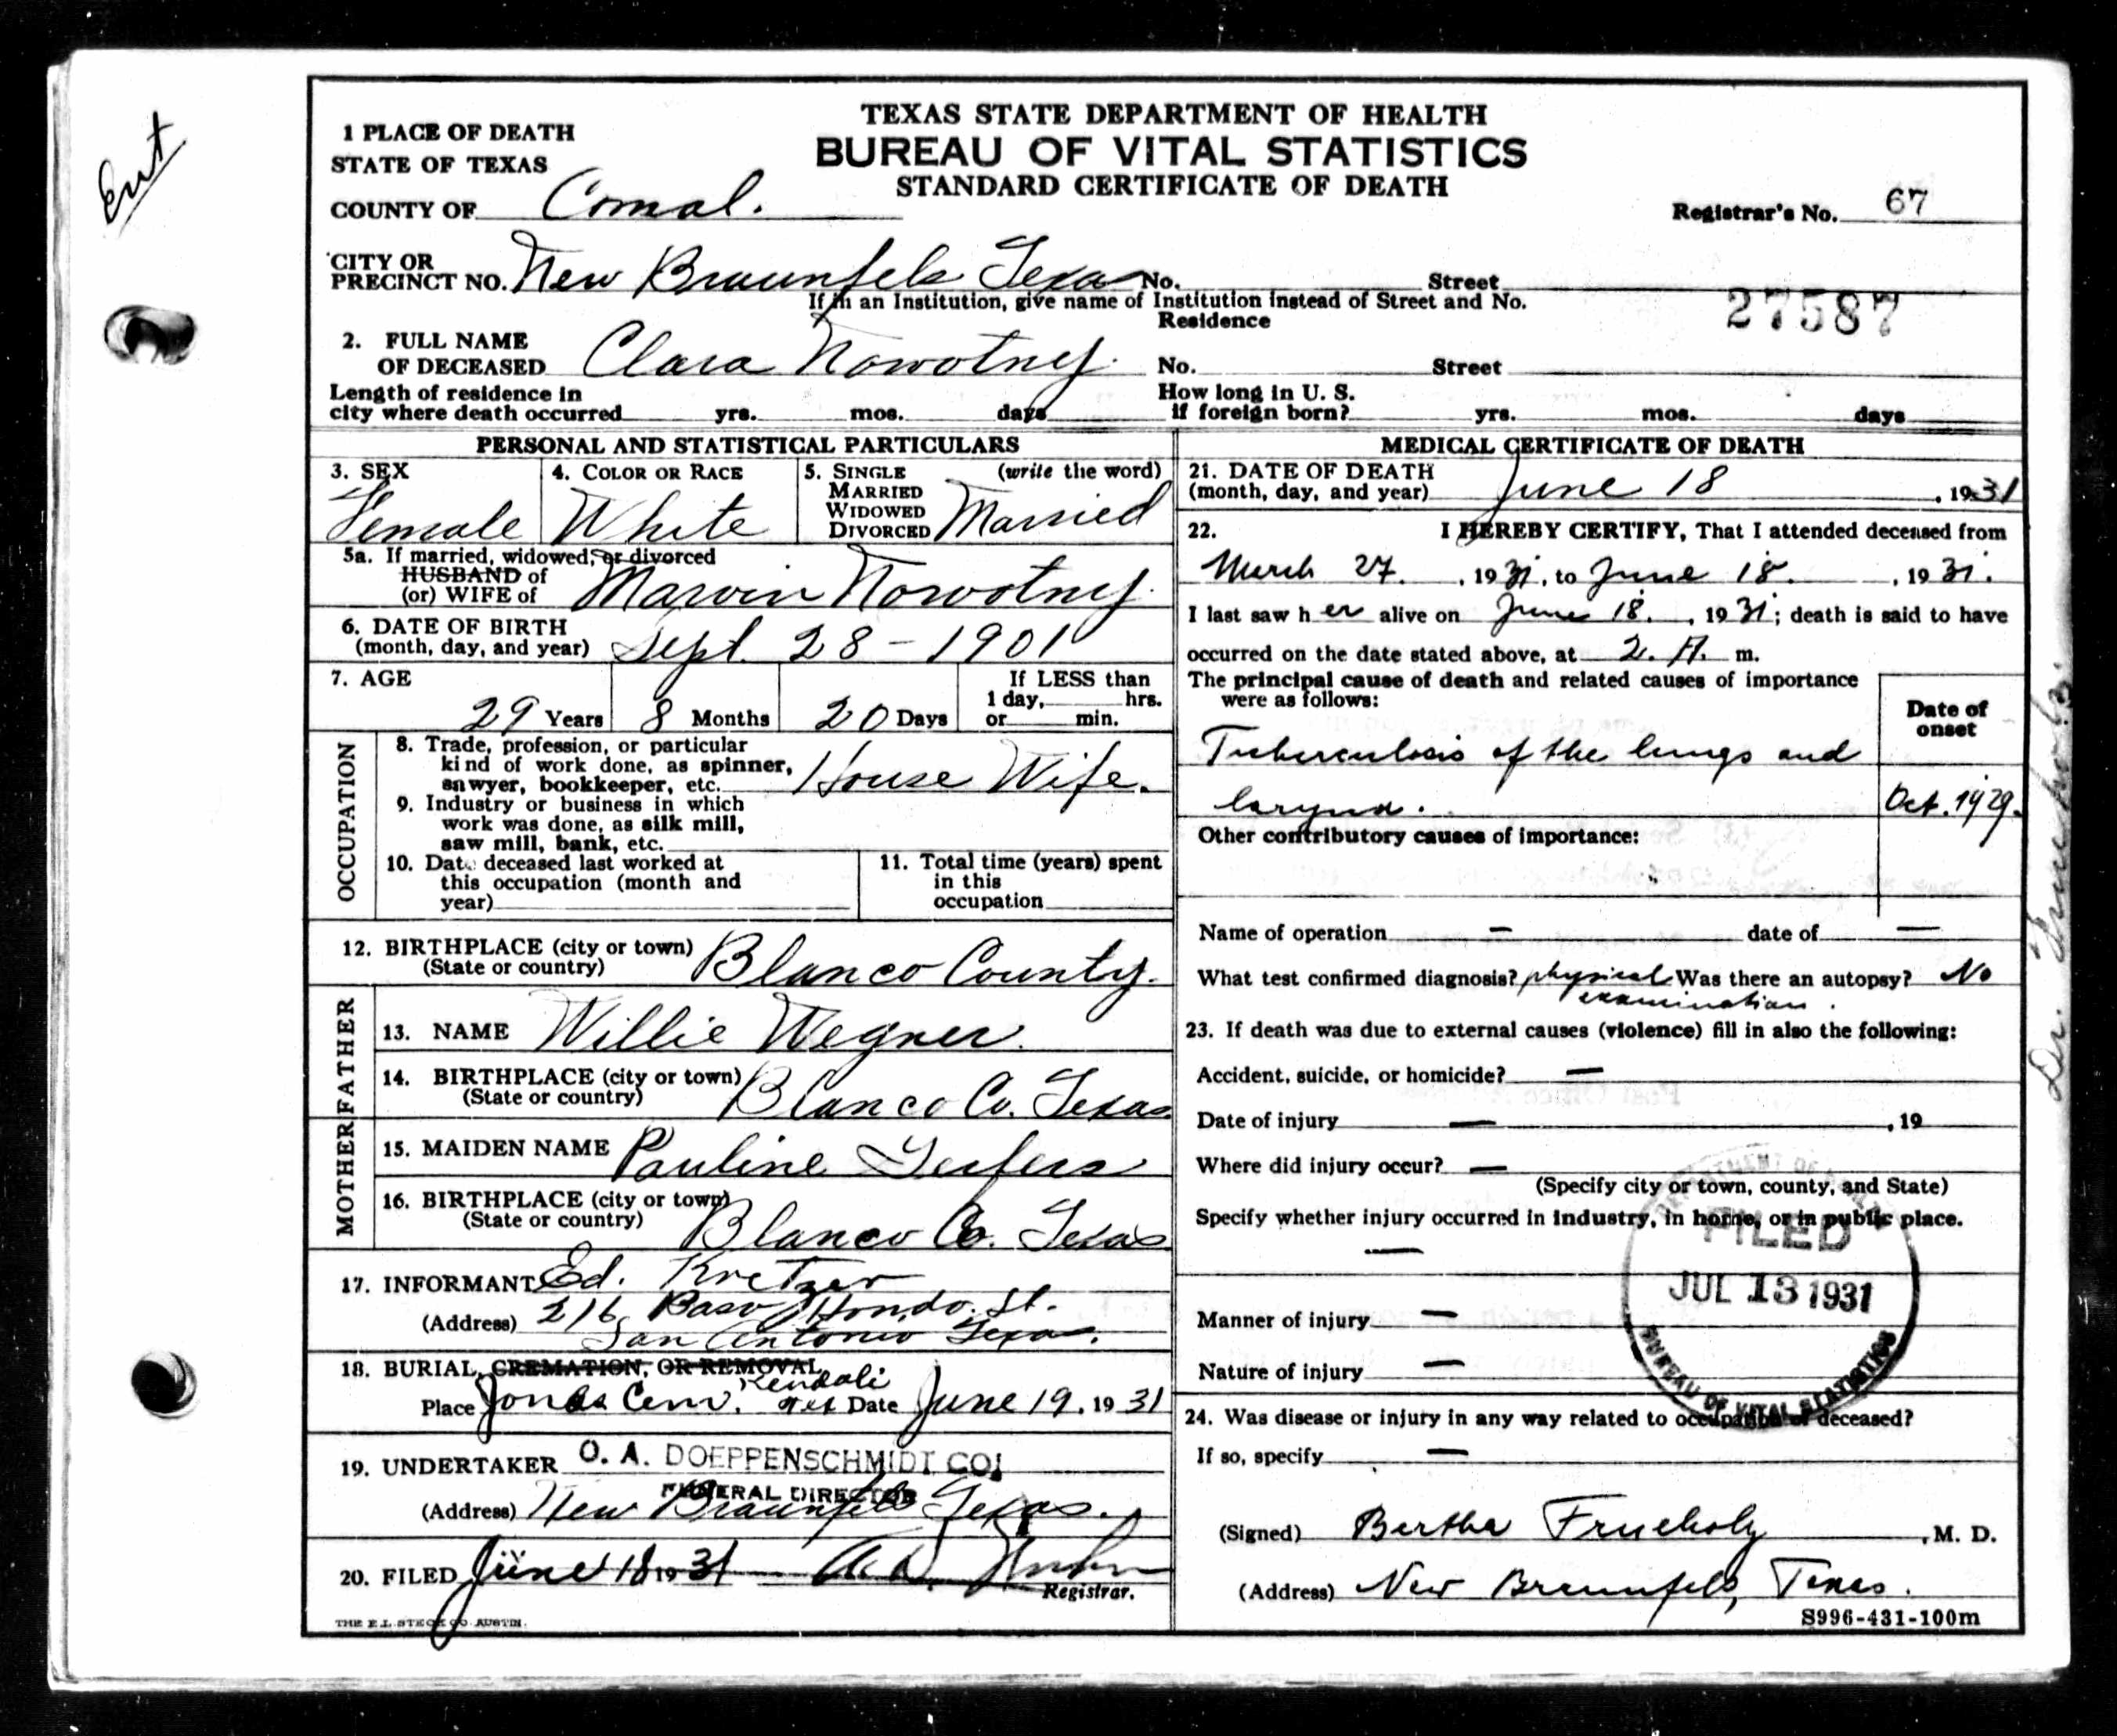 Ent
TEXAS STATE DEPARTMENT OF HEALTH
BUREAU OF VITAL STATISTICS
STANDARD CERTIFICATE OF DEATH
1 PLACE OF DEATH
STATE OF TEXAS
COUNTY OF Comal.
Registrar's No. 67
CITY OR
PRECINCT NO. New Braunfels Texas No. Street
If in an Institution, give name of Institution instead of Street and No.
27587
2. FULL NAME
OF DECEASED Clara Nowotny.
Residence
No. Street
Length of residence in
city where death occurred yrs. mos. days
How long in U. S.
if foreign born? yrs. mos. days
PERSONAL AND STATISTICAL PARTICULARS
3. SEX
Female
4. COLOR OR RACE
White
5. SINGLE (write the word)
MARRIED
WIDOWED
DIVORCED Married
5a. If married, widowed, or divorced
HUSBAND of
(or) WIFE of Marvin Nowotny.
6. DATE OF BIRTH
(month, day, and year) Sept. 28 - 1901
7. AGE
29 Years 8 Months 20 Days
If LESS than
1 day, hrs.
or min.
OCCUPATION
8. Trade, profession, or particular
kind of work done, as spinner,
sawyer, bookkeeper, etc. House Wife.
9. Industry or business in which
work was done, as silk mill,
saw mill, bank, etc.
10. Date deceased last worked at
this occupation (month and
year)
11. Total time (years) spent
in this
occupation
12. BIRTHPLACE (city or town)
(State or country) Blanco County.
FATHER
13. NAME Willie Wegner.
14. BIRTHPLACE (city or town)
(State or country) Blanco Co. Texas
MOTHER
15. MAIDEN NAME Pauline
16. BIRTHPLACE (city or town)
(State or country) Blanco Co. Texas
17. INFORMANT Ed. Kretzer
(Address) 216 Baso Hondo. St.
San Antonio Texas.
18. BURIAL, CREMATION, OR REMOVAL
Kendall
Place Cem. Date June 19. 1931
19. UNDERTAKER O. A. DOEPPENSCHMIDT CO.
FUNERAL DIRECTOR
(Address) New Braunfels Texas.
20. FILED June 18 1931 A. D.
Registrar.
THE E.L. STECK CO. AUSTIN.
MEDICAL CERTIFICATE OF DEATH
21. DATE OF DEATH
(month, day, and year) June 18, 1931
22. I HEREBY CERTIFY, That I attended deceased from
March 27., 1931, to June 18., 1931.
I last saw her alive on June 18., 1931; death is said to have
occurred on the date stated above, at 2. A. m.
The principal cause of death and related causes of importance
were as follows:
Date of
onset
Tuberculosis of the lungs and
larynx. Oct. 1929.
Other contributory causes of importance:
Name of operation — date of —
What test confirmed diagnosis? physical Was there an autopsy? No
examination.
23. If death was due to external causes (violence) fill in also the following:
Accident, suicide, or homicide? —
Date of injury —, 19
Where did injury occur? —
(Specify city or town, county, and State)
Specify whether injury occurred in industry, in home, or in public place.
—
Manner of injury —
Nature of injury —
DEPARTMENT OF HEALTH
FILED
JUL 13 1931
BUREAU OF VITAL STATISTICS
24. Was disease or injury in any way related to occupation of deceased?
If so, specify —
(Signed) Bertha Frueholz, M. D.
(Address) New Braunfels, Texas.
S996-431-100m
Dr. Frueholz